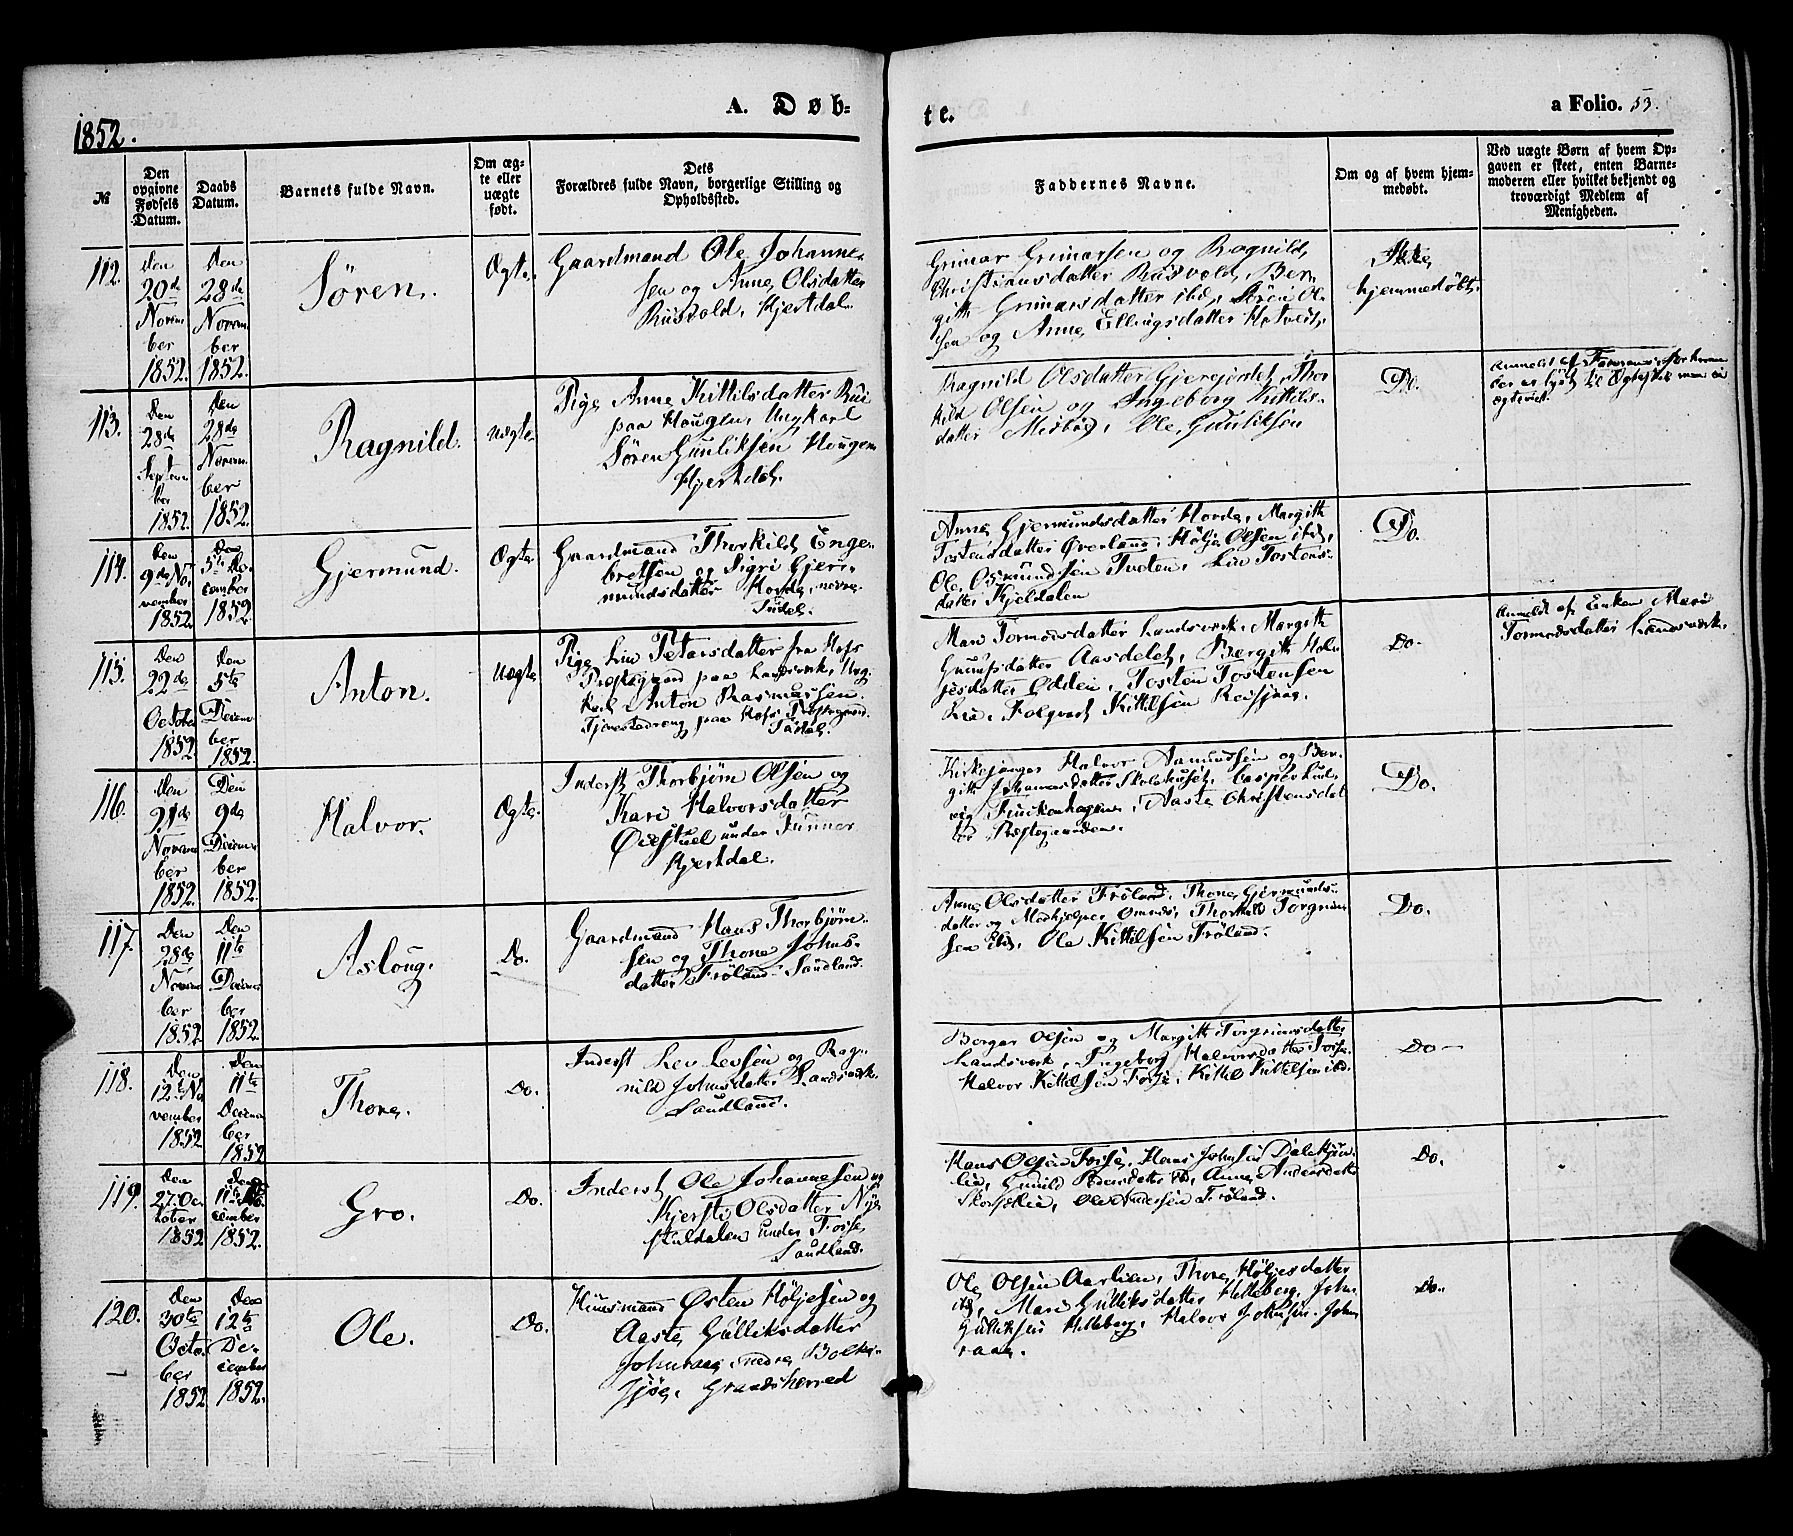 A. Døb-
te.
a Folio. 53.
1852.
№
Den
opgivne
Fødsels
Datum.
Daabs
Datum.
Barnets fulde Navn.
Om æg-
te eller
uægte
født.
Dets
Forældres fulde Navn, borgerlige Stilling og
Opholdssted.
Faddernes Navne.
Om og af hvem hjem-
medøbt.
Ved uægte Børn af hvem Op-
gaven er skeet, enten Barne-
moderen eller hvilket bekjendt og
troværdigt Medlem af
Menigheden.
112.
Den
20de
Novem
ber
1852.
Den
28de
Novem
ber
1852.
Søren.
Ægte.
Gaardmand Ole Johanne-
sen og Anne Olsdatter
Rusvold, Hjertdal.
Grimar Grimarsen og Ragnild
Christiansdatter Rusvold, Ber
gith Grimarsdatter ibd, Søren Ol-
sen og Anne Ellingsdatter
Ikke
hjemmedøbt.
113.
Den
28de
Septem
ber
1852.
Den
28de
Novem
ber
1852.
Ragnild.
Uægte.
Pige Anne Kittilsdatter
paa Haugen, Ungkarl
Søren Gunliksen Haugen
Hjertdal.
Ragnild Olsdatter Gjerejordet, Thor
kild Olsen og Ingeborg Kittils-
datter Ole Gunliksen
Do.
Anmeldt af
der er lyst til Ægteskab men ei
ægteviet.
114.
Den
9de No
vember
1852.
Den
5te De-
cember
1852.
Gjermund.
Ægte.
Gaardmand Thorkild Enge-
bretsen og Sigri Gjer-
mundsdatter Horde, nørre
Tudal.
Anne Gjermundsdatter Horde, Margith
Tostensdatter Øverland, Hølje Olsen ibd,
Ole Osmundsen Tveten, Liv Tostens-
datter Kjeldalen
Do.
115.
Den
22de
October
1852
Den
5te
Decem
ber
1852.
Anton.
Uægte
Pige Liv Petersdatter fra Hofs
Præstegaard paa Landsverk, Ung-
karl Anton Rasmussen
Tjenestedreng paa Hofs Præstegaard.
Tudal.
Mari Tormodsdatter Landsverk, Margith
datter Aasdalet, Bergith Høl
jesdatter Ødden, Tosten Tostensen
Lia, Folqvard Kittilsen
Do.
Anmeldt af Enken Mari
Tormodsdatter Landsverk.
116.
Den
21de
Novem
ber
1852.
Den
9de
Decem
ber
1852.
Halvor.
Ægte.
Inderst Thorbjørn Olsen og
Kari Halvorsdatter
under
Hjertdal.
Kirkesanger Halvor Aamundsen og Ber-
gith Johannesdatter Skolehuset, Casper Lud
vig Finckenhagen, Aaste Christensdat
ter Præstegaarden.
Do.
117.
Den
28de
Novem
ber
1852.
Den
11te
Decem
ber
1852.
Aslaug.
Do.
Gaardmand Hans Thorbjørn
sen og Thone Johns-
datter Frøland. Sandland.
Anne Olsdatter Frøland, Thone Gjermunds-
datter og Medhjelper Thorkild Torgrim
sen ibd, Ole Kittilsen Frøland.
Do.
118.
Den
12te No
vember
1852
Den
11te
Decem
ber
1852
Thone.
Do.
Inderst Lev Levsen og Rag-
nild Johnsdatter Landsverk.
Sandland.
Borger Olsen og Margith Torgrimsdatter
Landsverk, Ingeborg Halvorsdatter
Halvor Kittilsen Kittil Kittilsen ibd.
Do
119.
Den
27. Oc
tober
1852
Den
11te De
cember
1852.
Gro.
Do.
Inderst Ole Johannesen og
Kjersti Olsdatter Nys
under
Sandland.
Hans Olsen Hans Johnsen
lid, Gunild datter ibd, Anne Andersdatter
Ole Andersen Frøland.
Do.
120.
Den
30te
Octo
ber
1852
Den
12te
De-
cember
1852.
Ole.
Do.
Huusmand Østen Høljesen og
Aaste Gulliksdatter
nedre Bolke-
sjøe. Grandsherred
Ole Olsen Aarlien, Thone Høljesdatter
ibd, Mari Gulliksdatter Helleberg, John
Gulliksen Helleberg, Halvor Johnsen John-
raae.
Do.